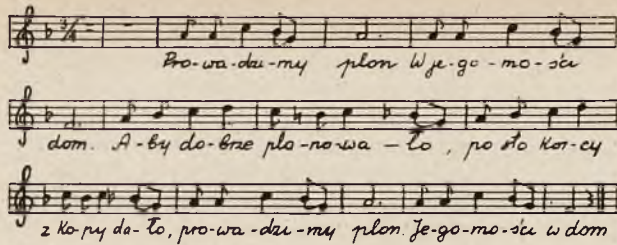 Pro-wa-dzi-my plon W je-go-mo-ści
dom. A-by do-brze plo-no-wa-ło, po sto kor-cy
z ko-py da-ło, pro-wa-dzi-my plon. Je-go-mo-ści w dom